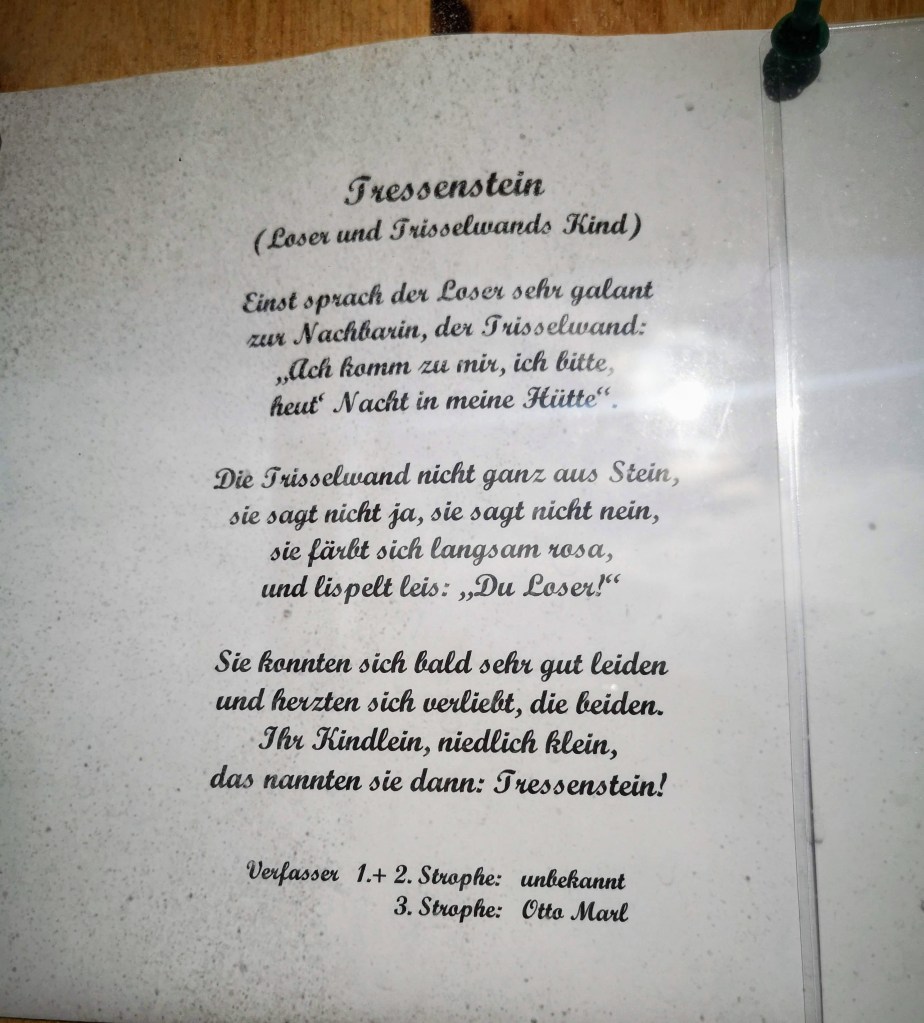 Tressenstein
(Loser und Trisselwands Kind)
Einst sprach der Loser sehr galant
zur Nachbarin, der Trisselwand:
„Ach komm zu mir, ich bitte,
heut‘ Nacht in meine Hütte“.
Die Trisselwand nicht ganz aus Stein,
sie sagt nicht ja, sie sagt nicht nein,
sie färbt sich langsam rosa,
und lispelt leis: „Du Loser!“
Sie konnten sich bald sehr gut leiden
und herzten sich verliebt, die beiden.
Ihr Kindlein, niedlich klein,
das nannten sie dann: Tressenstein!
Verfasser 1.+ 2. Strophe: unbekannt
3. Strophe: Otto Marl